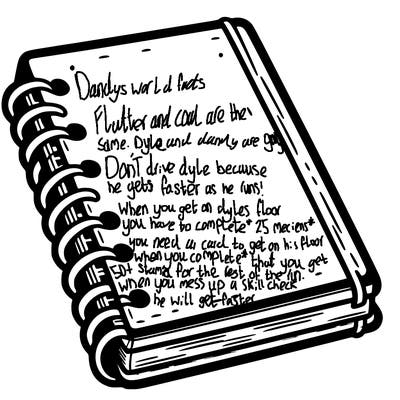 Dandys world facts
Flutter and coal are the
same. Dyle and dandy are gay
Don't drive dyle because
he gets faster as he runs!
When you get on dyles floor
you have to complete* 25 meciens*
you need a card to get on his floor
When you complete* that you get
50+ stamina for the rest of the run.
When you mess up a skill check
he will get faster